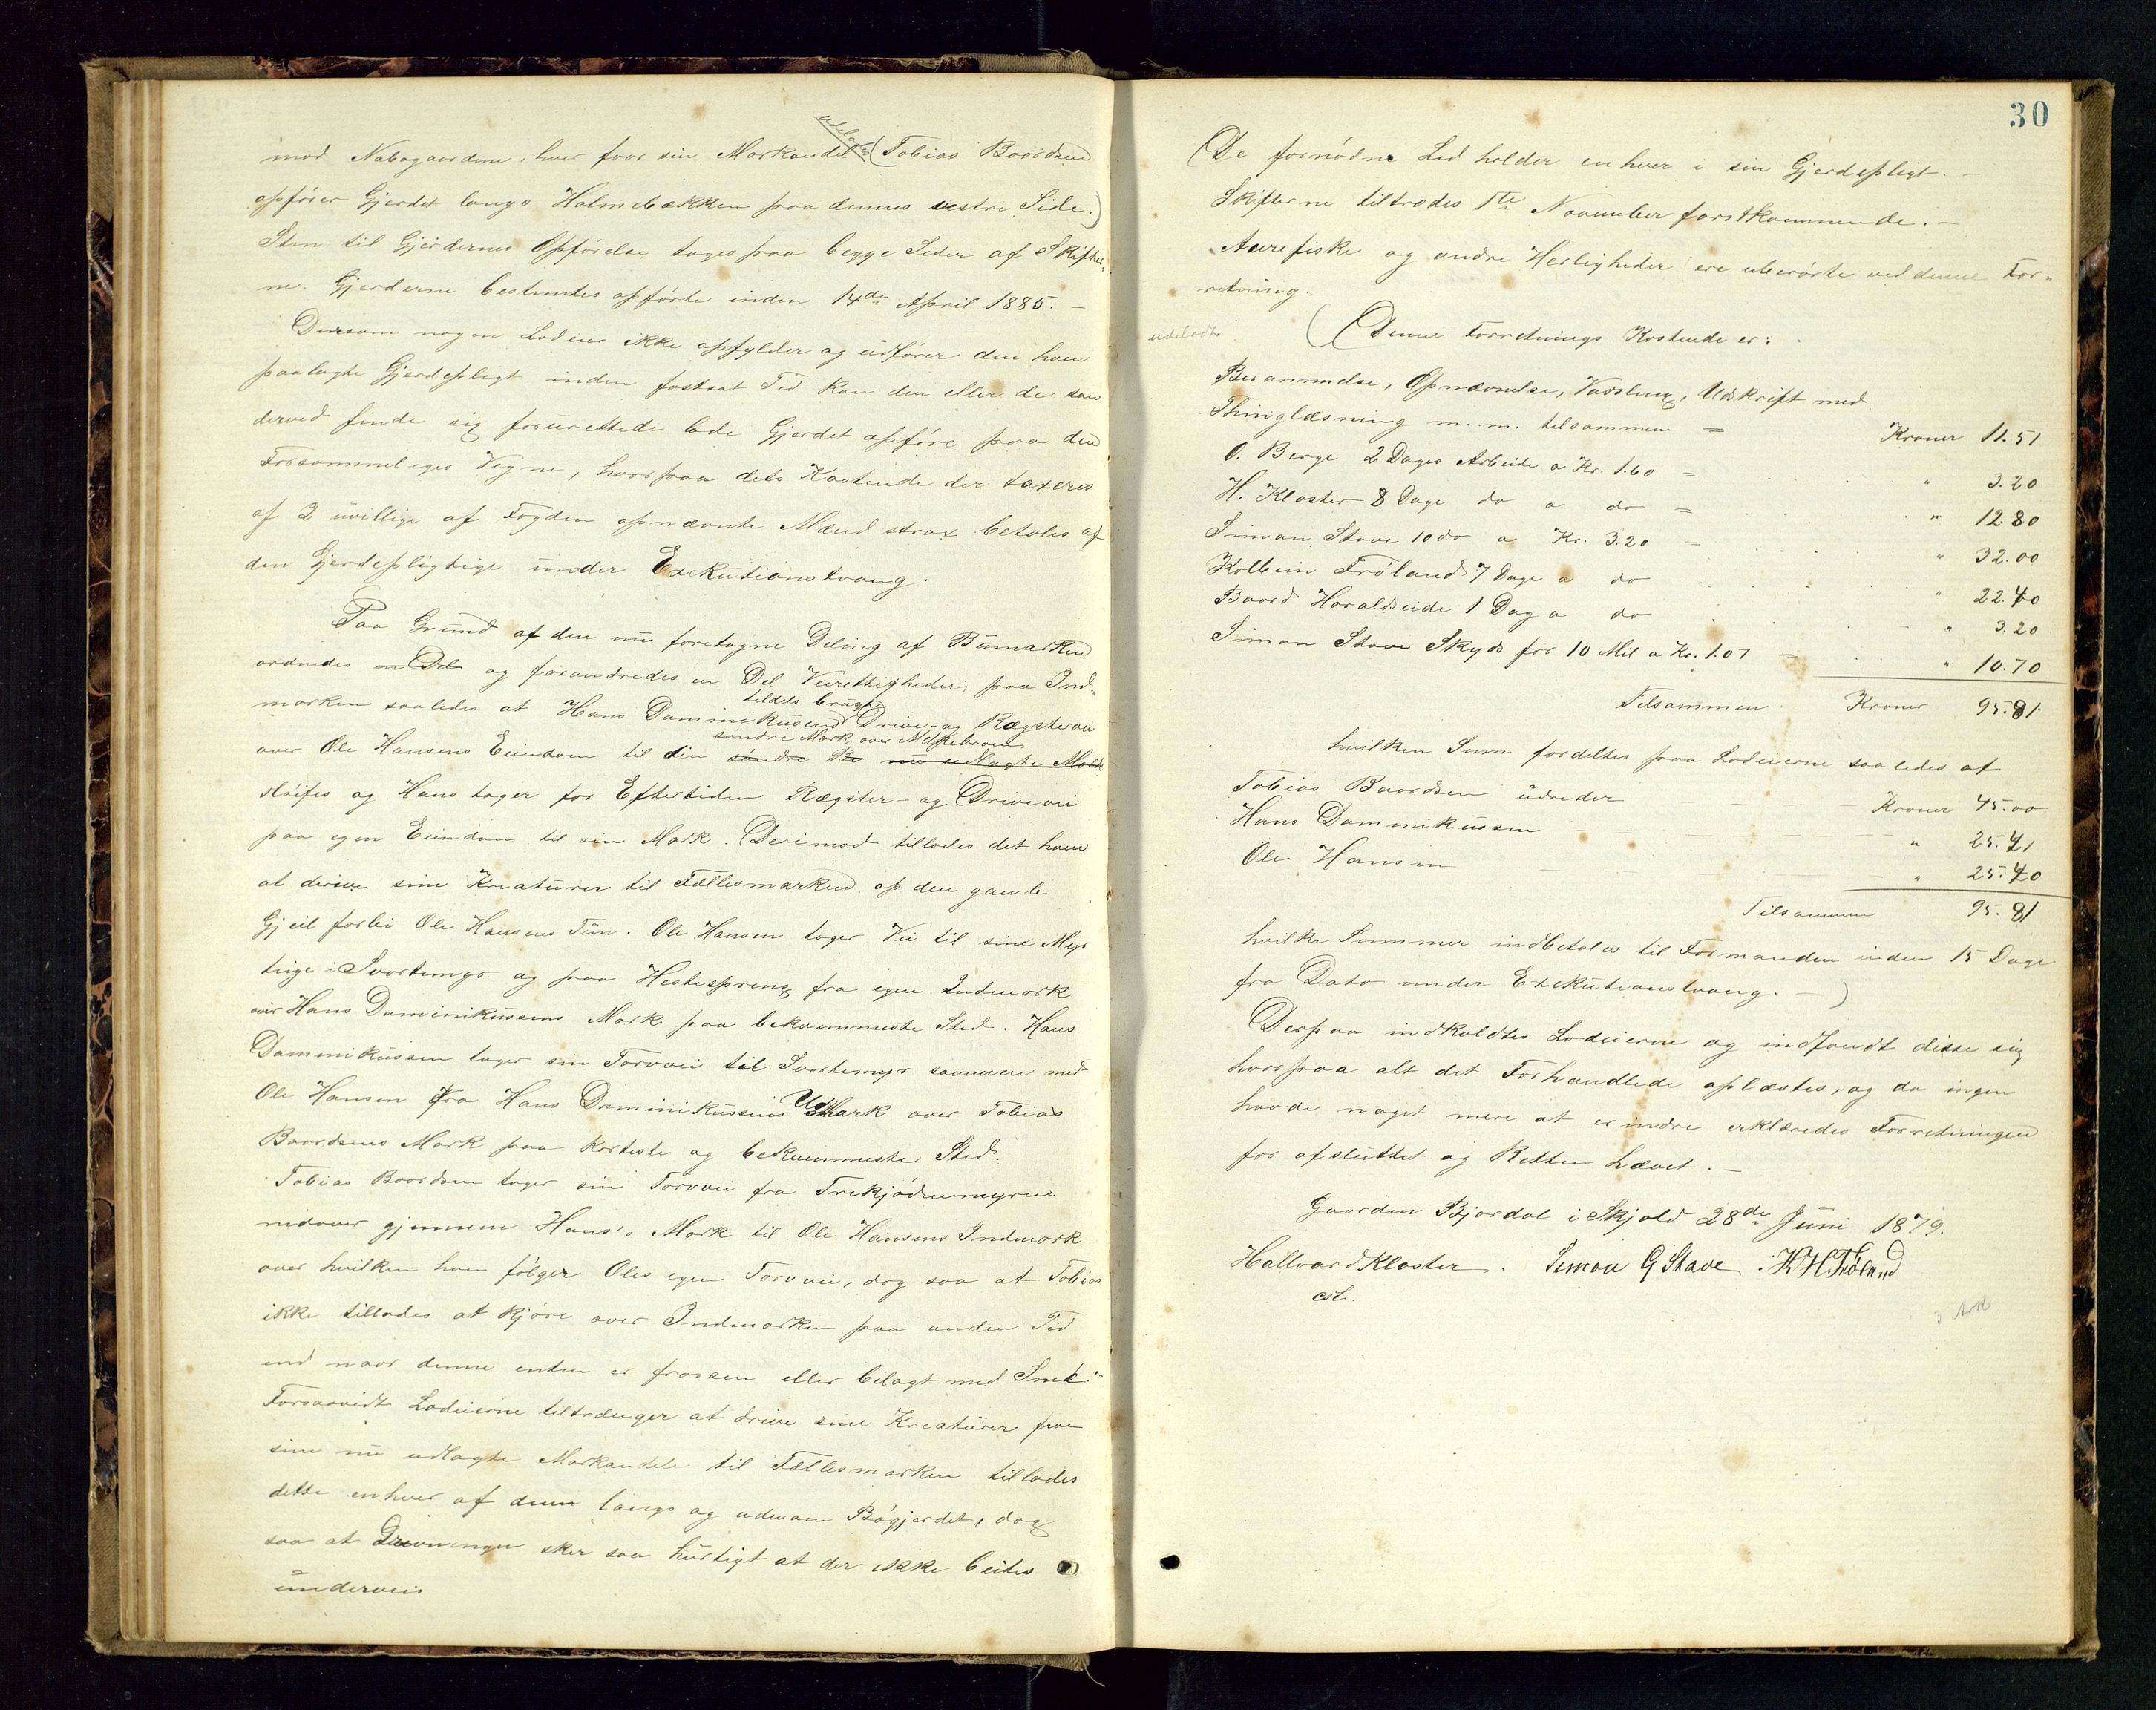 mod Nabogaardene, hver foor sin Markandel (Tobias Baardsen
udelagte
opfører Gjerdet langs Holmebækken paa dennes vestre Side.)
Sten til Gjerdernes Opførelse tages paa begge Sider af Skifter-
ne. Gjerderne bestemtes opførte inden 14de April 1885. -
Dersom nogen Lodeier ikke opfylder og udfører den ham
paalagte Gjerdepligt inden fastsat Tid kan den eller de som
derved finde sig forurettede lade Gjerdet opføre paa den
Forsømmeliges Vegne, hvorpaa dets Kostende der taxeres
af 2 uvillige af Fogden opnævnte Mænd strax betales af
den Gjerdepligtige under Exekutionstvang.
Paa Grund af den nu foretagne Deling af Bumarken
ordnedes en Del og forandredes en Del Veirettigheder paa Ind-
marken saaledes at Hans Dominikusens Drive- og Rægstervei
tildels brugte
over Ole Hansens Eiendom til den søndre Bø nu udlagte Mark
søndre Mark over Melkebroen
sløifes og Hans tager for Eftertiden Rægster- og Drivevei
paa egen Eiendom til sin Mark. Derimod tillodes det ham
at drive sine Kreaturer til Fællesmarken op den gamle
Gjeil forbi Ole Hansens Tun. Ole Hansen tager Vei til sine Myr
teige i Svortemyr og paa Hestespreng fra egen Indmark
over Hans Dominikussens Mark paa bekvemmeste Sted. Hans
Dominikussen tager sin Torvvei til Svortemyr sammen med
Ole Hansen fra Hans Dominikussens Udmark over Tobias
Baardsens Mark paa korteste og bekvemmeste Sted.
Tobias Baardsen tager sin Torvvei fra Trekjødnemyrene
nedover gjennem Hans's Mark til Ole Hansens Indmark
over hvilken han følger Oles egen Torvvei, dog saa at Tobias
ikke tillades at kjøre over Indmarken paa anden Tid
end naar denne enten er frossen eller belagt med Sneé.-
Forsaavidt Lodeierne tiltrænger at drive sine Kreaturer fra
sine nu udlagte Markandele til Fællesmarken tillades
dette enhver af dem langs og udenom Bøgjerdet, dog
saa at Drivningen sker saa hurtigt at der ikke beites
underveis
30
(De fornødne Led holder enhver i sin Gjerdepligt. -
Skifterne tiltrædes 1te November førstkommende. -
Aurefiske og andre Herligheder ere uberørte ved denne For-
retning.
udeladt (Denne Forretnings Kostende er:
Berammelse, Opnævnelse, Varsling, Udskrift med
Thinglæsning m. m. tilsammen = Kroner 11.51
O. Berge 2 Dages Arbeide a Kr. 1.60 = " 3.20
H. Kloster 8 Dage do a do = " 12.80
Simon Stave 10 do a Kr. 3.20 = " 32.00
Kolbein Frøland 7 Dage a do " 22.40
Baard Haraldseide 1 Dag a do " 3.20
Simon Stave Skyds for 10 Mil a Kr. 1.07 = " 10.70
Tilsammen Kroner 95.81
hvilken Sum fordeltes paa Lodeierne saaledes at
Tobias Baardsen udreder Kroner 45.00
Hans Dominikussen " 25.41
Ole Hansen " 25.40
Tilsammen 95.81
hvilke Summer indbetales til Formanden inden 15 Dage
fra Dato under Exekutionstvang. - )
Derpaa indkaldtes Lodeierne og indfandt disse sig
hvorpaa alt det Forhandlede oplæstes, og da ingen
havde noget mere at erindre erklæredes Forretningen
for afsluttet og Retten hævet. -
Gaarden Bjordal i Skjold 28de Juni 1879.
Hallvard Kloster. Simon G Stave. K H. Frøland
est.
3 Ark